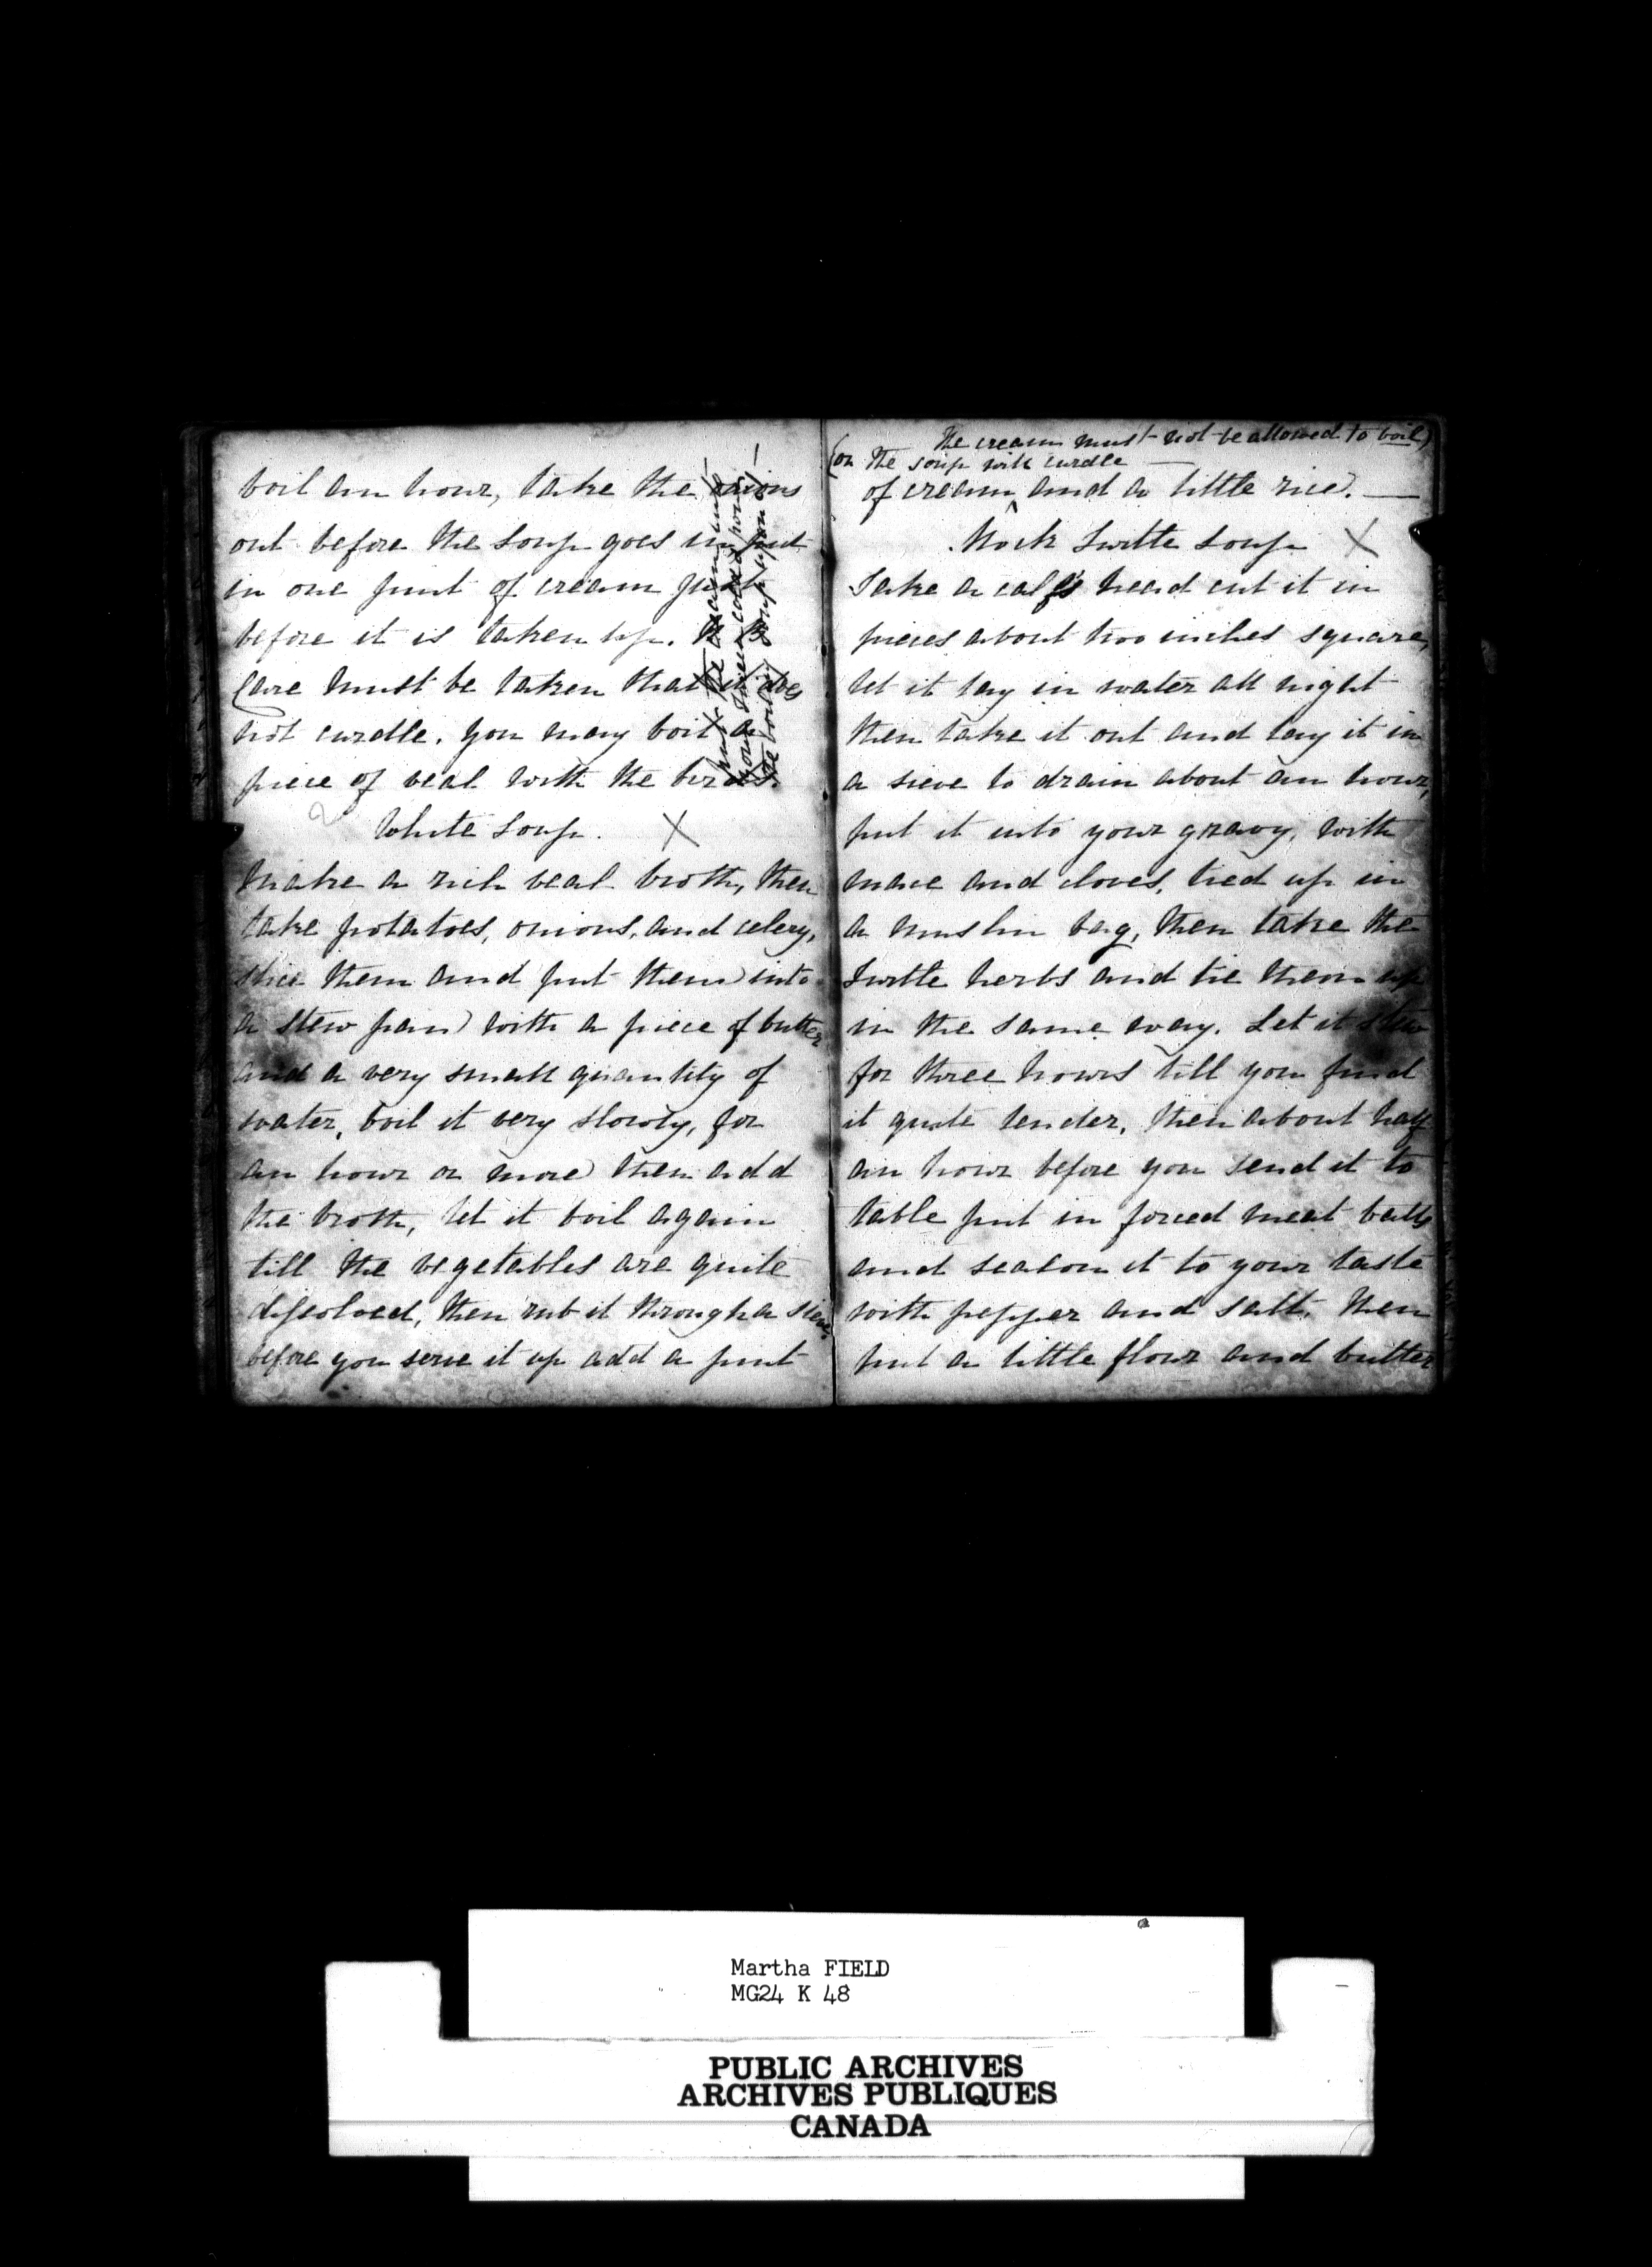 boil an hour, take the onions
out before the soup goes in put
in one pint of cream just
before it is taken up.
Care must be taken that it does
not curdle. you may boil a
piece of veal with the birds.
put the cream in
your tureen and pour
the boiling soup upon it
2
White Soup. X
Make a rich veal broth, then
take potatoes, onions, and celery,
slice them and put them into
a stew pan with a piece of butter
and a very small quantity of
water, boil it very slowly, for
an hour or more then add
the broth, let it boil again
till the vegetables are quite
disolved, then rub it through a sieve,
before you serve it up add a pint
The cream must not be allowed to boil)
(or the soup will curdle —
of cream ^ and a little rice. —
Mock Turtle Soup X
Take a calf's head cut it in
pieces about two inches square,
let it lay in water all night
then take it out and lay it in
a sieve to drain about an hour,
put it into your gravy, with
mace and cloves, tied up in
a muslin bag, then take the
Turtle herbs and tie them up
in the same way. Let it stew
for three hours till you find
it quite tender, then about half
an hour before you send it to
table put in forced meat balls
and season it to your taste
with pepper and salt, then
put a little flour and butter
Martha FIELD
MG24 K 48
PUBLIC ARCHIVES
ARCHIVES PUBLIQUES
CANADA